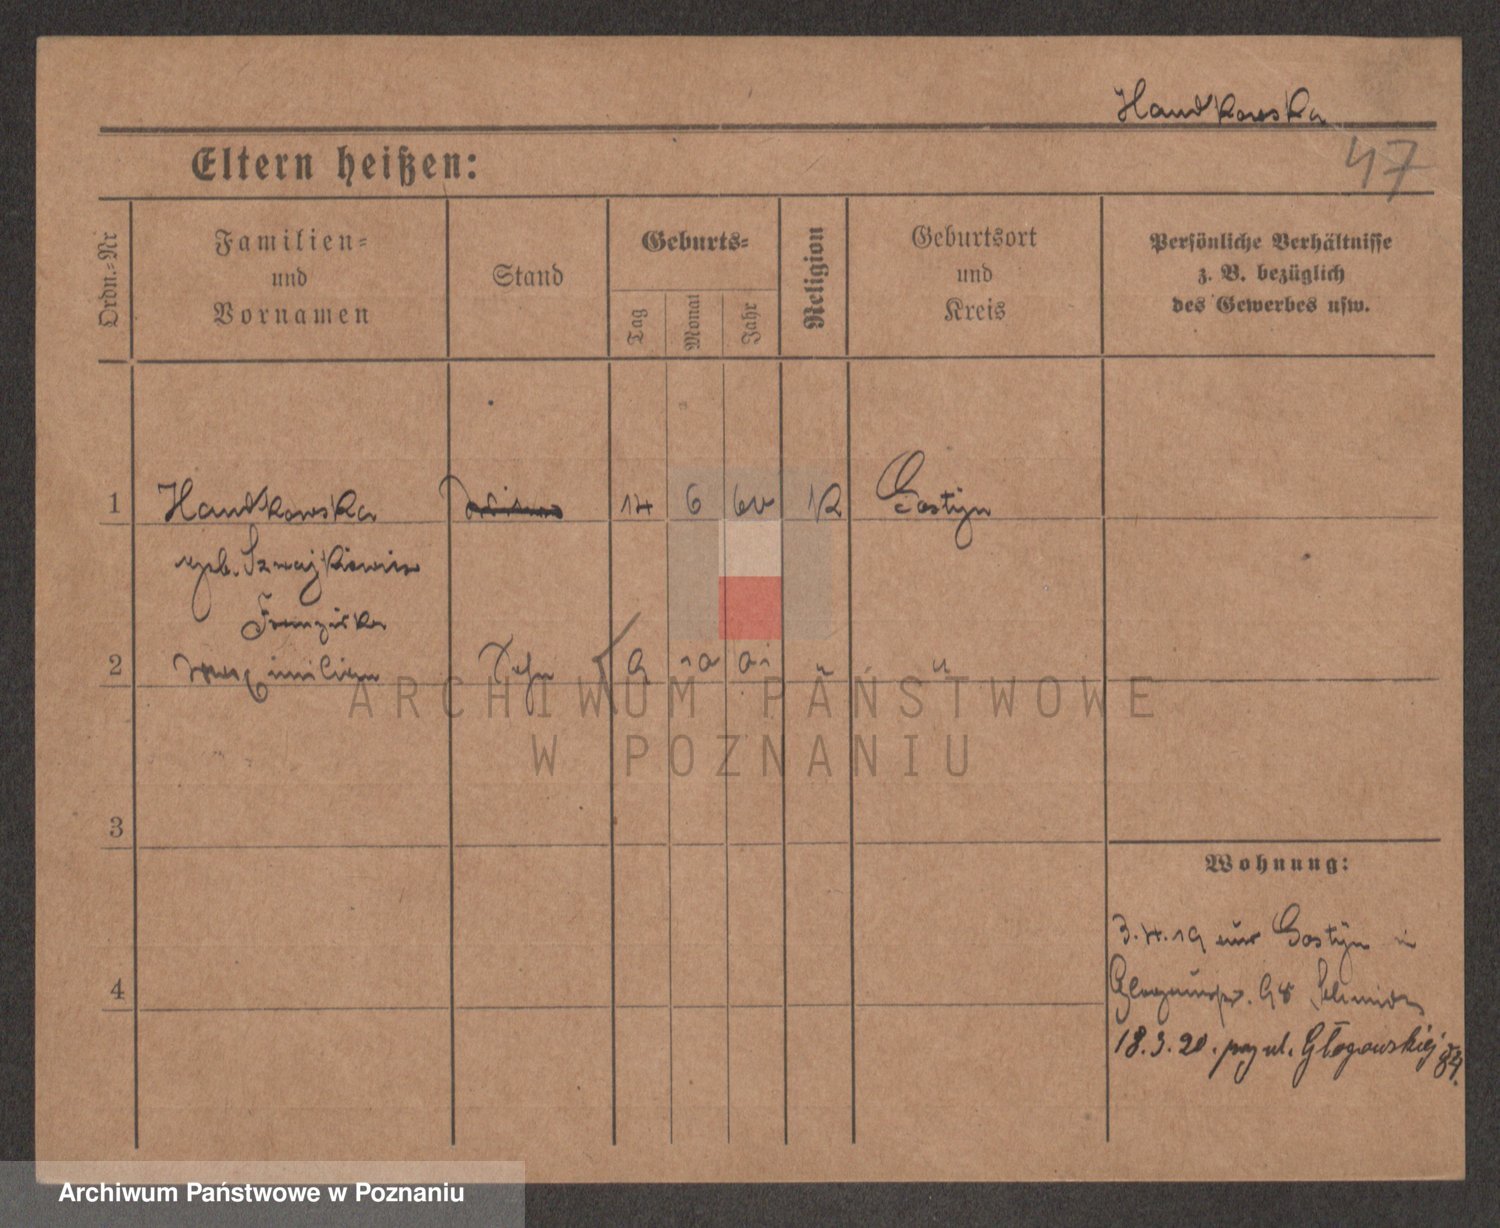 Handkowska
47
Eltern heißen:
Ordn.-Nr
Familien-
und
Vornamen
Stand
Geburts-
Tag
Monat
Jahr
Religion
Geburtsort
und
Kreis
Persönliche Verhältnisse
z. B. bezüglich
des Gewerbes usw.
1 Handkowska 14 6 K Gostyn
geb.
Franziska
2 Maximilian Sohn 9 10 01 " "
3
4
Wohnung:
3.4.19 aus Gostyn in
Glogauerstr. 98 Schmidt
18.3.20. przy ul. Głogowskiej 84.
ARCHIWUM PAŃSTWOWE
W POZNANIU
Archiwum Państwowe w Poznaniu